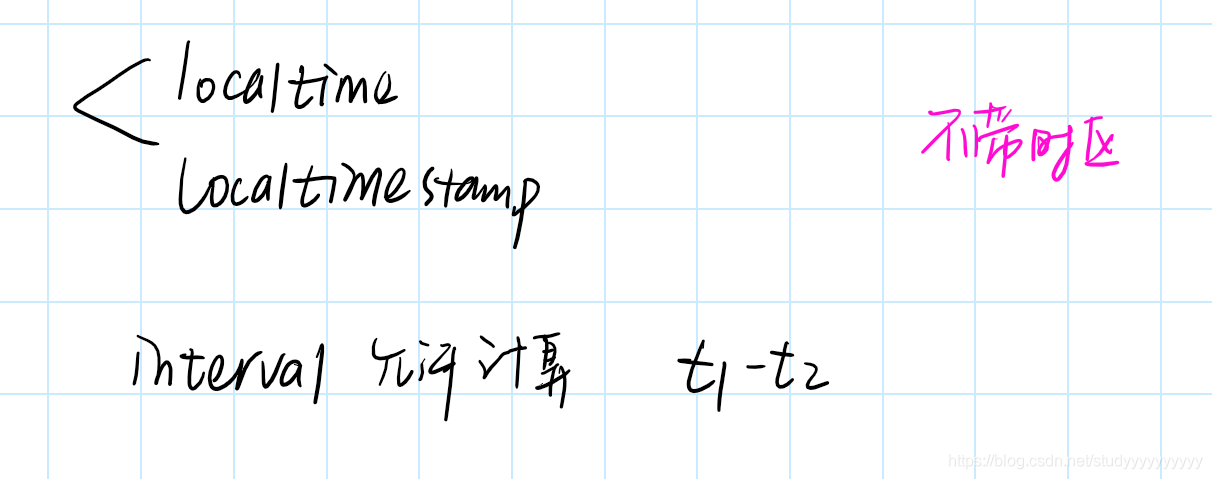 localtime
不带时区
localtimestamp
interval 允许计算 t1-t2
https://blog.csdn.net/studyyyyyyyyyy